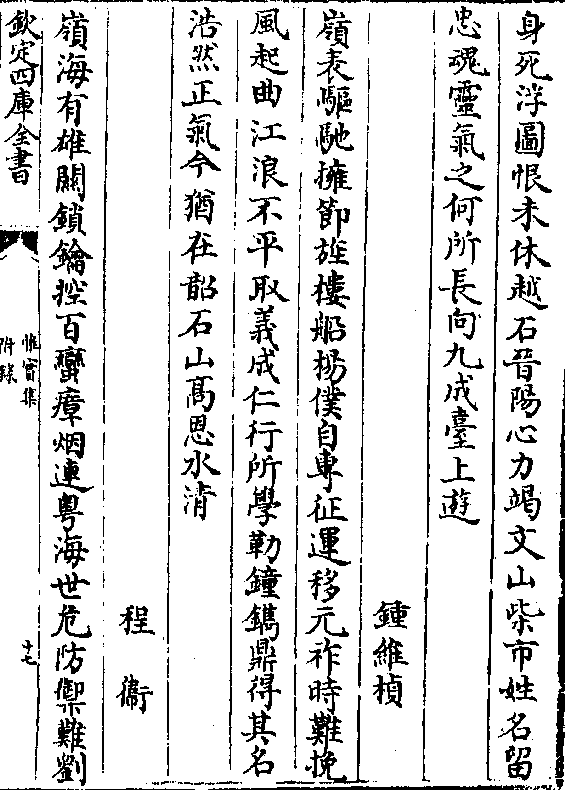 身死浮圖恨未休越石晉陽心力竭文山柴市姓名留
忠魂靈氣之何所長向九成臺上遊
鍾維楨
嶺表驅馳擁節旌樓船楊僕自專征運移元祚時難挽
風起曲江浪不平取義成仁行所學勒鐘鐫鼎得其名
浩然正氣今猶在韶石山髙恩水清
程衞
嶺海有雄關鎖鑰控百蠻瘴烟連粤海世危防禦難劉
欽定四庫全書
惟實集
附錄
十七